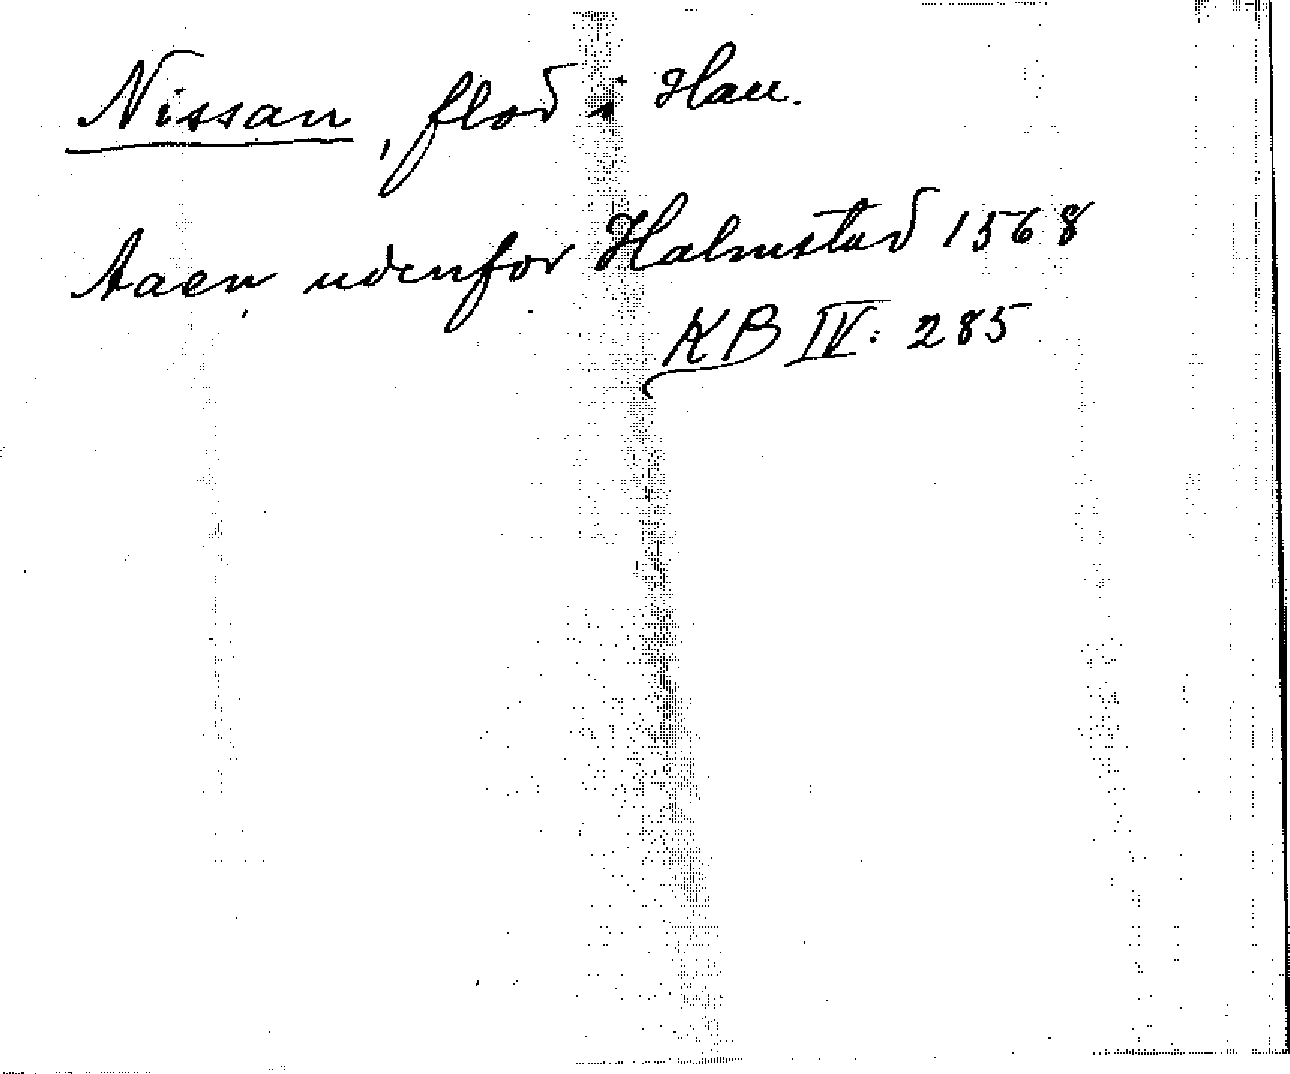 Nissan, flod i Hall.
Aaen udenfor Halmstad 1568
KB IV: 285